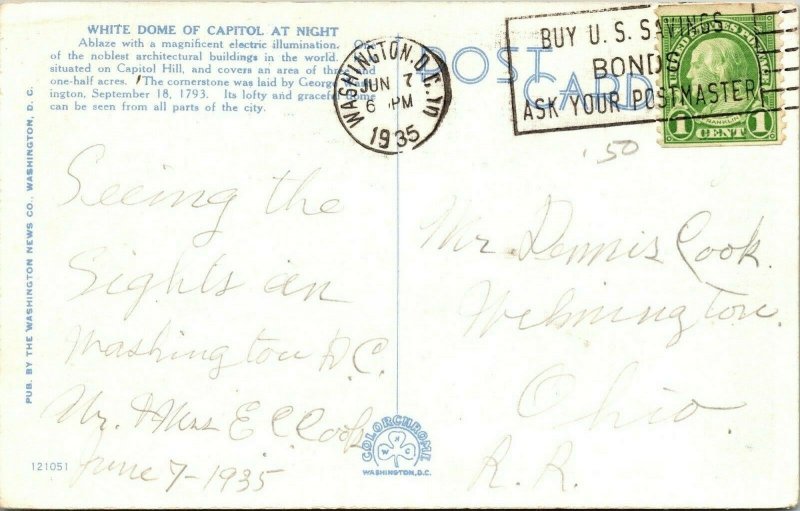 WHITE DOME OF CAPITOL AT NIGHT
Ablaze with a magnificent electric illumination. On
of the noblest architectural buildings in the world.
situated on Capitol Hill, and covers an area of thr nd
one-half acres. The cornerstone was laid by George
ington, September 18, 1793. Its lofty and graceful ome
can be seen from all parts of the city.
POST CARD
WASHINGTON, D.C.
JUN 7
6 PM
1935
BUY U.S. SAVINGS
BONDS
ASK YOUR POSTMASTER
FRANKLIN
1 CENT 1
.50
PUB. BY THE WASHINGTON NEWS CO., WASHINGTON, D. C.
Seeing the
Sights in
Washington D.C.
Mr. & Mrs E C Cook
June 7-1935
Mr. Dennis Cook.
Wilmington.
Ohio.
R.R.
COLORCHROME
N
W C
WASHINGTON, D.C.
121051